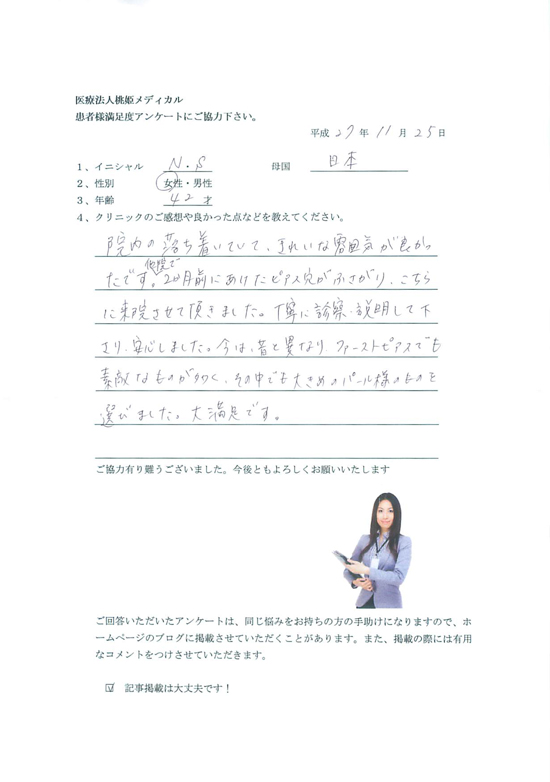 医療法人桃姫メディカル
患者様満足度アンケートにご協力下さい。
平成 27 年 11 月 25 日
1、イニシャル N・S 母国 日本
2、性別 女性・男性
3、年齢 42 才
4、クリニックのご感想や良かった点などを教えてください。
院内の落ち着いていて、きれいな雰囲気が良かっ
たです。他院で2ヶ月前にあけたピアス穴がふさがり、こちら
に来院させて頂きました。丁寧に診察、説明して下
さり、安心しました。今は、昔と異なり、ファーストピアスでも
素敵なものが多く、その中でも大きめのパール様のものを
選びました。大満足です。
ご協力有り難うございました。今後ともよろしくお願いいたします
ご回答いただいたアンケートは、同じ悩みをお持ちの方の手助けになりますので、ホ
ームページのブログに掲載させていただくことがあります。また、掲載の際には有用
なコメントをつけさせていただきます。
☑ 記事掲載は大丈夫です！